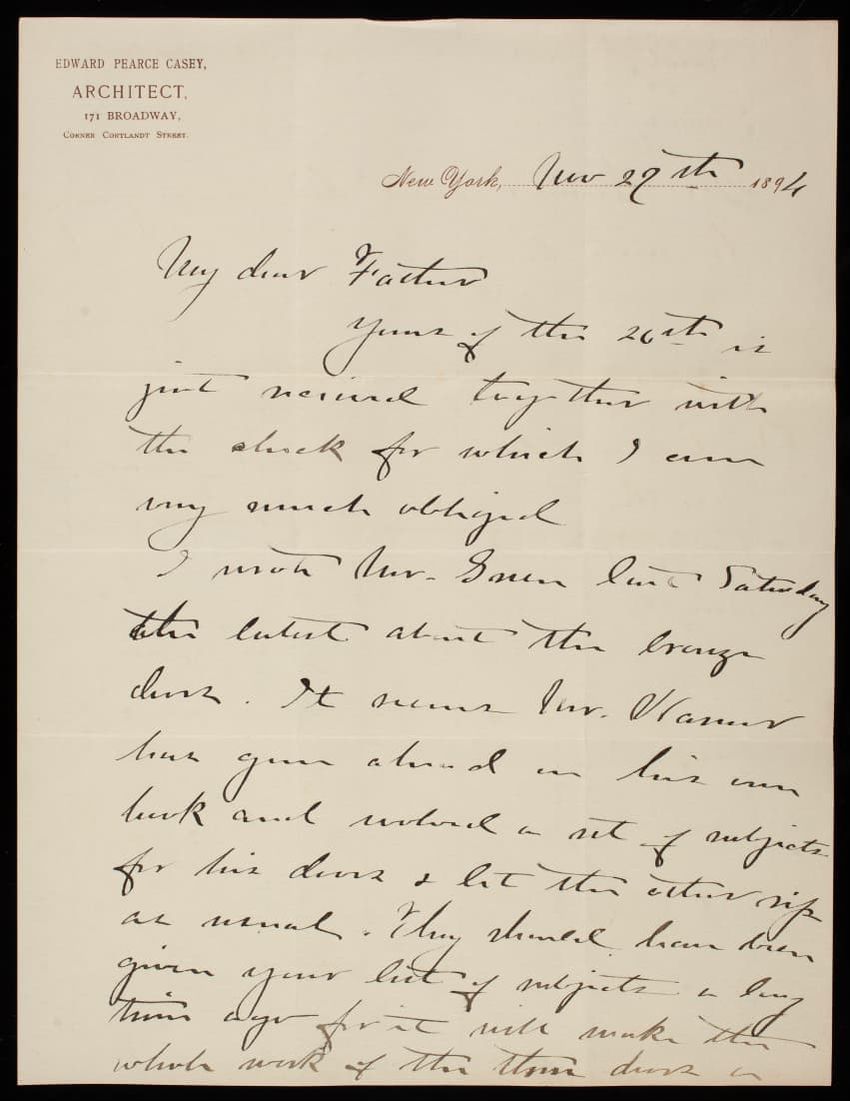 EDWARD PEARCE CASEY,
ARCHITECT,
171 BROADWAY,
CORNER CORTLANDT STREET.
New York, Nov 27th 1894
My dear Father
Yours of the 26th is
just received together with
the check for which I am
very much obliged
I wrote Mr. Green last Saturday
the latest about the bronze
doors. It seems Mr. Warner
has gone ahead on his own
hook and evolved a set of subjects
for his doors & let the other rip
as usual. They should have been
given your list of subjects a long
time ago for it will make the
whole work of the three doors a